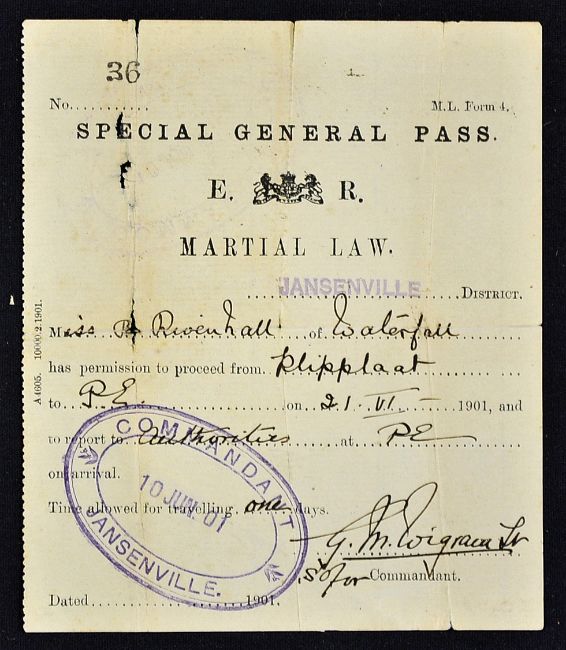 36
No. .......... M.L. Form 4.
SPECIAL GENERAL PASS.
E. R.
MARTIAL LAW.
JANSENVILLE DISTRICT.
Miss Rivenhall of Waterfall
has permission to proceed from Klipplaat
to P.E. on 21 VI 1901, and
to report to authorities at PE
on arrival.
Time allowed for travelling one days.
G. M. Wigram Lt
for Commandant.
Dated 1901.
COMMANDANT
10 JUN. 01
JANSENVILLE.
A4605. 10000.2.1901.